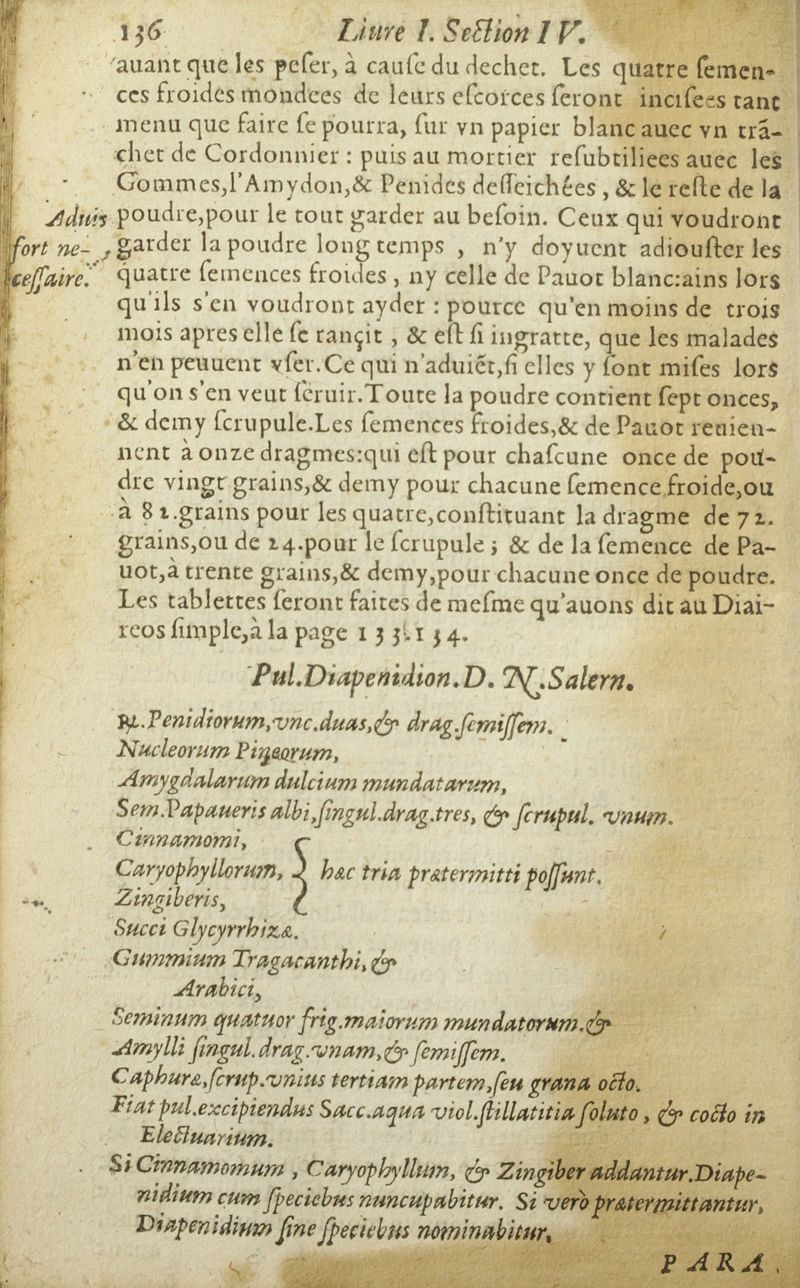 136 Liure I. Section IV.
auant que les peser, à cause du dechet. Les quatre semen-
ces froides mondees de leurs escorces seront incisees tant
menu que faire se pourra, sur vn papier blanc auec vn trã-
chet de Cordonnier : puis au mortier resubtiliees auec les
Gommes,l'Amydon,& Penides desseichées , & le reste de la
poudre,pour le tout garder au besoin. Ceux qui voudront
garder la poudre long temps , n'y doyuent adiouster les
quatre semences froides , ny celle de Pauot blanc:ains lors
qu'ils s'en voudront ayder : pource qu'en moins de trois
mois apres elle se rançit , & est si ingratte, que les malades
n'en peuuent vser.Ce qui n'aduiẽt,si elles y sont mises lors
qu'on s'en veut seruir.Toute la poudre contient sept onces,
& demy scrupule.Les semences froides,& de Pauot reuien-
nent à onze dragmes:qui est pour chascune once de pou-
dre vingt grains,& demy pour chacune semence froide,ou
à 82.grains pour les quatre,constituant la dragme de 72.
grains,ou de 24.pour le scrupule ; & de la semence de Pa-
uot,à trente grains,& demy,pour chacune once de poudre.
Les tablettes seront faites de mesme qu'auons dit au Diai-
reos simple,à la page 133.134.
Aduis
fort ne-
cessaire.
Pul.Diapenidion.D. N.Salern.
℞.Penidiorum,vnc.duas,& drag.semissem.
Nucleorum Pineorum,
Amygdalarum dulcium mundatarum,
Sem.Papaueris albi,singul.drag.tres, & scrupul. vnum.
Cinnamomi,
Caryophyllorum, } hæc tria prætermitti possunt.
Zingiberis,
Succi Glycyrrhizæ.
Gummium Tragacanthi, &
Arabici,
Seminum quatuor frig.maiorum mundatorum.&
Amylli singul. drag.vnam,& semissem.
Caphuræ,scrup.vnius tertiam partem,seu grana octo.
Fiat pul.excipiendus Sacc.aqua viol.stillatitia soluto , & cocto in
Electuarium.
Si Cinnamomum , Caryophyllum, & Zingiber addantur.Diape-
nidium cum speciebus nuncupabitur. Si verò prætermittantur,
Diapenidium sine speciebus nominabitur.
PARA.